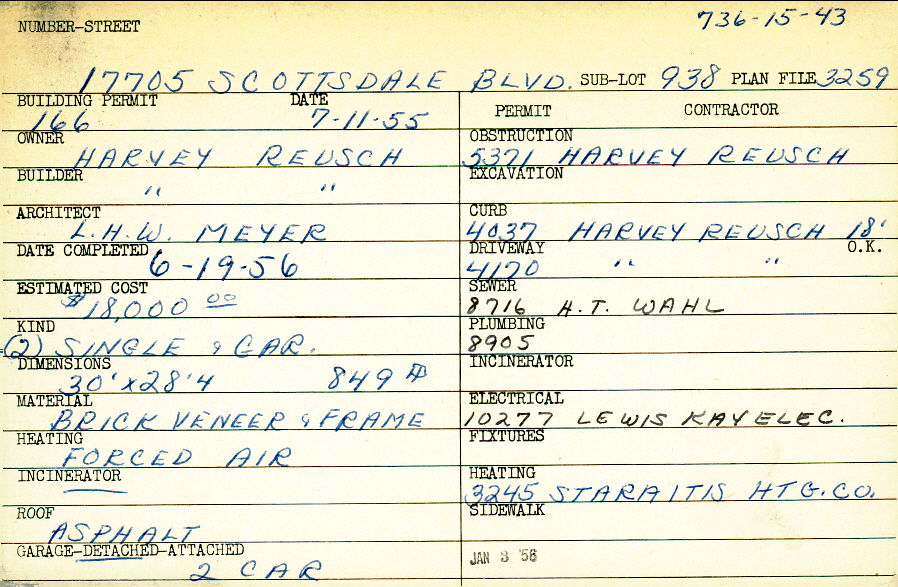 736-15-43
NUMBER-STREET
17705 SCOTTSDALE BLVD. SUB-LOT 938 PLAN FILE 3259
BUILDING PERMIT DATE
166 7-11-55
OWNER
HARVEY REUSCH
BUILDER
" "
ARCHITECT
L.H.W. MEYER
DATE COMPLETED
6-19-56
ESTIMATED COST
$18,000 00
KIND
(2) SINGLE & GAR.
DIMENSIONS
30'x28'4 849
MATERIAL
BRICK VENEER & FRAME
HEATING
FORCED AIR
INCINERATOR
ROOF
ASPHALT
GARAGE-DETACHED-ATTACHED
2 CAR
PERMIT CONTRACTOR
OBSTRUCTION
5371 HARVEY REUSCH
EXCAVATION
CURB
4037 HARVEY REUSCH 18'
DRIVEWAY O.K.
4170 " "
SEWER
8716 H.T. WAHL
PLUMBING
8905
INCINERATOR
ELECTRICAL
10277 LEWIS KAY ELEC.
FIXTURES
HEATING
3245 STARAITIS HTG. CO.
SIDEWALK
JAN 3 '56